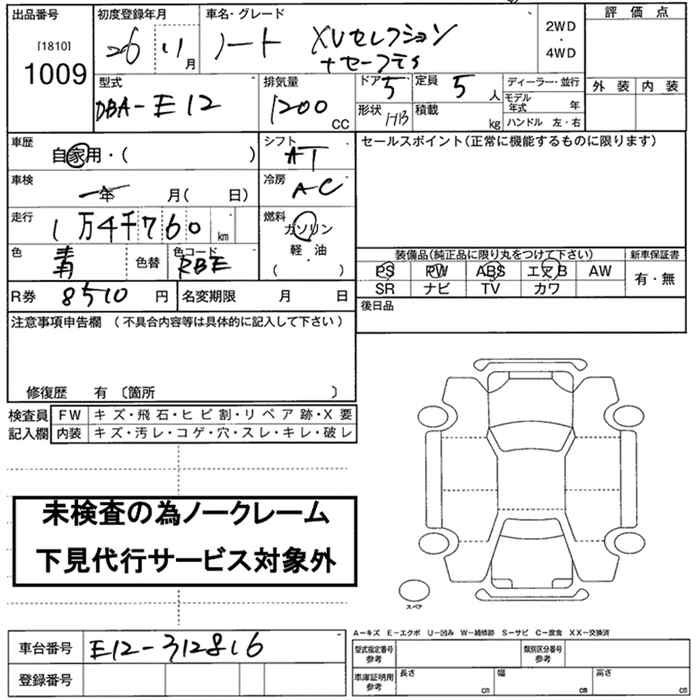 出品番号 初度登録年月 車名・グレード 2WD 評価点
[1810] 26 11月 ノート XVセレクション ・
1009 +セーフティ 4WD
型式 排気量 ドア 定員 ディーラー・並行 外装 内装
DBA-E12 1200 CC 5 5人 モデル年式 年
形状 H/B 積載 kg ハンドル 左・右
車歴 シフト セールスポイント(正常に機能するものに限ります)
自家用・( ) AT
車検 冷房
年 月( 日) AC
走行 燃料
1万4千760km ガソリン
色 色コード 軽・油 装備品(純正品に限り丸をつけて下さい) 新車保証書
青 色替 RBE ( ) PS PW ABS エアB AW 有・無
R券 8510円 名変期限 月 日 SR ナビ TV カワ
注意事項申告欄 (不具合内容等は具体的に記入して下さい) 後日品
修復歴 有 〔箇所 〕
検査員 FW キズ・飛石・ヒビ割・リペア跡・X要
記入欄 内装 キズ・汚レ・コゲ・穴・スレ・キレ・破レ
未検査の為ノークレーム
下見代行サービス対象外
スペア
A-キズ E-エクボ U-凹み W-補修跡 S-サビ C-腐食 XX-交換済
車台番号 E12-312816 型式指定番号参考 類別区分番号参考
登録番号 車庫証明用参考 長さ cm 幅 cm 高さ cm